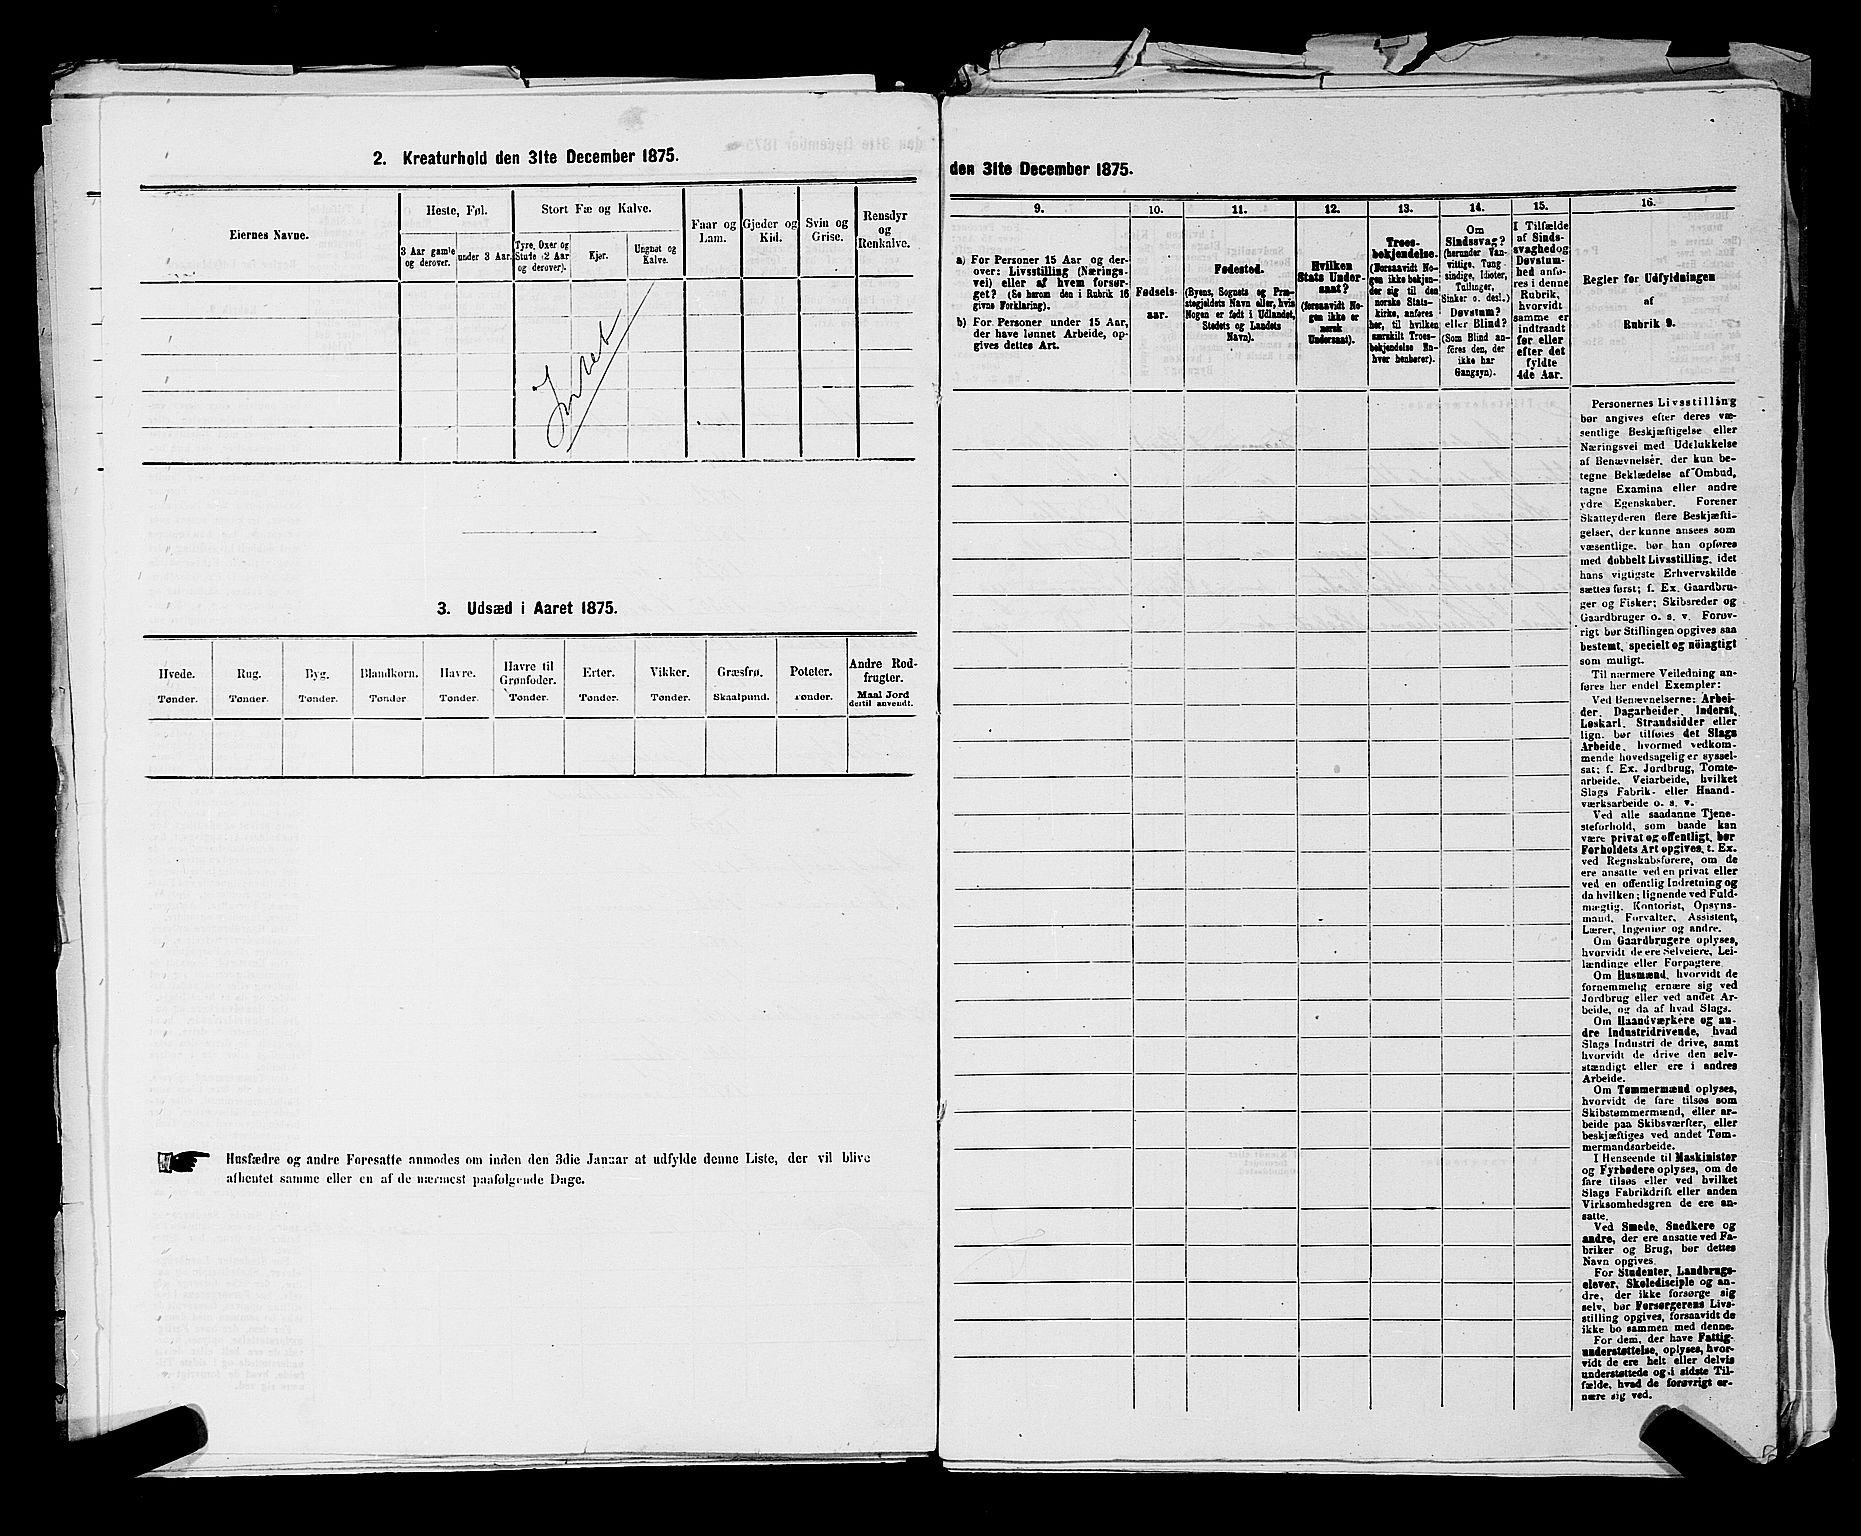 2. Kreaturhold den 31te December 1875.
Eiernes Navne.
Heste, Føl.
3 Aar gamle og derover.
under 3 Aar.
Stort Fæ og Kalve.
Tyre, Oxer og Stude (2 Aar og derover).
Kjør.
Ungnøt og Kalve.
Faar og Lam.
Gjeder og Kid.
Svin og Grise.
Rensdyr og Renkalve.
Intet
3. Udsæd i Aaret 1875.
Hvede. Rug. Byg. Blandkorn. Havre. Havre til Grønfoder. Erter. Vikker. Græsfrø. Poteter. Andre Rodfrugter.
Tønder. Tønder. Tønder. Tønder. Tønder. Tønder. Tønder. Tønder. Skaalpund. Tønder. Maal Jord dertil anvendt.
Husfædre og andre Foresatte anmodes om inden den 3die Januar at udfylde denne Liste, der vil blive
afhentet samme eller en af de nærmest paafølgende Dage.
den 31te December 1875.
9.
a) For Personer 15 Aar og derover: Livsstilling (Næringsvei) eller af hvem forsørget? (Se herom den i Rubrik 16 givne Forklaring).
b) For Personer under 15 Aar, der have lønnet Arbeide, opgives dettes Art.
10.
Fødselsaar.
11.
Fødested.
(Byens, Sognets og Præstegjeldets Navn eller, hvis Nogen er født i Udlandet, Stedets og Landets Navn).
12.
Hvilken Stats Undersaat?
(forsaavidt Nogen ikke er norsk Undersaat).
13.
Troesbekjendelse.
(Forsaavidt Nogen ikke bekjender sig til den norske Statskirke, anføres her, til hvilken særskilt Troesbekjendelse Enhver henhører).
14.
Om Sindssvag? (herunder Vanvittige, Tungsindige, Idioter, Tullinger, Sinker o. desl.) Døvstum? eller Blind? (Som Blind anføres den, der ikke har Gangsyn).
15.
I Tilfælde af Sindssvaghed og Døvstumhed anføres i denne Rubrik, hvorvidt samme er indtraadt før eller efter det fyldte 4de Aar.
16.
Regler for Udfyldningen
af
Rubrik 9.
Personernes Livsstilling
bør angives efter deres væ-
sentlige Beskjæftigelse eller
Næringsvei med Udelukkelse
af Benævnelser, der kun be-
tegne Beklædelse af Ombud,
tagne Examina eller andre
ydre Egenskaber. Forener
Skatteyderen flere Beskjæfti-
gelser, der kunne ansees som
væsentlige, bør han opføres
med dobbelt Livsstilling, idet
hans vigtigste Erhvervskilde
sættes først; f. Ex. Gaardbru-
ger og Fisker; Skibsreder og
Gaardbruger o. s. v. Forøv-
rigt bør Stillingen opgives saa
bestemt, specielt og nøiagtigt
som muligt.
Til nærmere Veiledning an-
føres her endel Exempler:
Ved Benævnelserne: Arbei-
der, Dagarbeider, Inderst,
Løskarl, Strandsidder eller
lign. bør tilføies det Slags
Arbeide, hvormed vedkom-
mende hovedsagelig er syssel-
sat; f. Ex. Jordbrug, Tomte-
arbeide, Veiarbeide, hvilket
Slags Fabrik- eller Haand-
værksarbeide o. s. v.
Ved alle saadanne Tjene-
steforhold, som baade kan
være privat og offentligt, bør
Forholdets Art opgives, t. Ex.
ved Regnskabsførere, om de
ere ansatte ved en privat eller
ved en offentlig Indretning og
da hvilken; lignende ved Fuld-
mægtig, Kontorist, Opsyns-
mand, Forvalter, Assistent,
Lærer, Ingeniør og andre.
Om Gaardbrugere oplyses,
hvorvidt de ere Selveiere, Lei-
lændinge eller Forpagtere.
Om Husmænd, hvorvidt de
fornemmelig ernære sig ved
Jordbrug eller ved andet Ar-
beide, og da af hvad Slags.
Om Haandværkere og an-
dre Industridrivende, hvad
Slags Industri de drive, samt
hvorvidt de drive den selv-
stændigt eller ere i andres
Arbeide.
Om Tømmermænd oplyses,
hvorvidt de fare tilsøs som
Skibstømmermænd, eller ar-
beide paa Skibsværfter, eller
beskjæftiges ved andet Tøm-
mermandsarbeide.
I Henseende til Maskinister
og Fyrbødere oplyses, om de
fare tilsøs eller ved hvilket
Slags Fabrikdrift eller anden
Virksomhedsgren de ere an-
satte.
Ved Smede, Snedkere og
andre, der ere ansatte ved Fa-
briker og Brug, bør dettes
Navn opgives.
For Studenter, Landbrugs-
elever, Skoledisciple og an-
dre, der ikke forsørge sig
selv, bør Forsørgerens Livs-
stilling opgives, forsaavidt de
ikke bo sammen med denne.
For dem, der have Fattig-
understøttelse, oplyses, hvor-
vidt de ere helt eller delvis
understøttede og i sidste Til-
fælde, hvad de forøvrigt er-
nære sig ved.